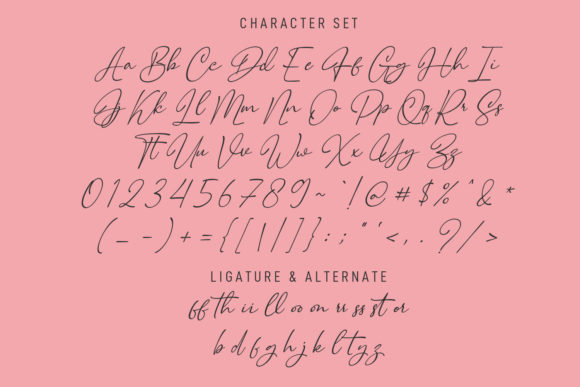 CHARACTER SET
Aa Bb Cc Dd Ee Ff Gg Hh Ii
Jj Kk Ll Mm Nn Oo Pp Qq Rr Ss
Tt Uu Vv Ww Xx Yy Zz
0123456789~`!@#$%^&*
(_-)+={[|\]}:;"'<,.?/>
LIGATURE & ALTERNATE
ff th ii ll oo on rr ss st or
b d f g h j k l t y z